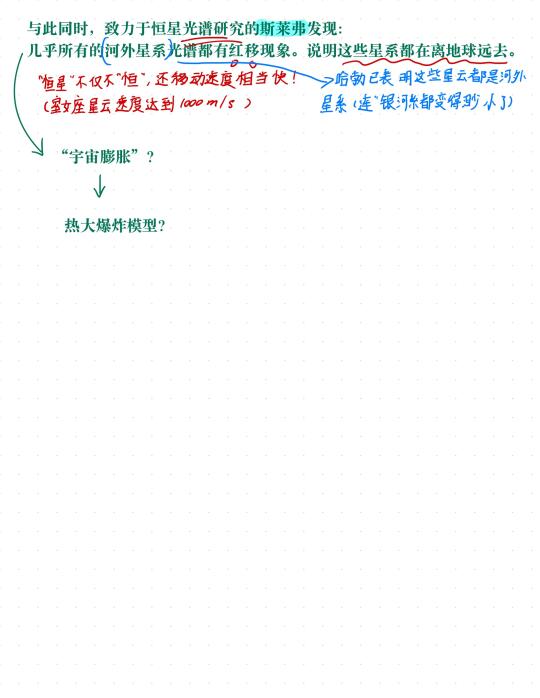 与此同时，致力于恒星光谱研究的斯莱弗发现：
几乎所有的河外星系光谱都有红移现象。说明这些星系都在离地球远去。
"恒星"不仅不"恒"，还移动速度相当快！
（室女座星云速度达到1000m/s）
哈勃已表明这些星云都是河外
星系（连"银河系都变得渺小了）
“宇宙膨胀”？
热大爆炸模型？